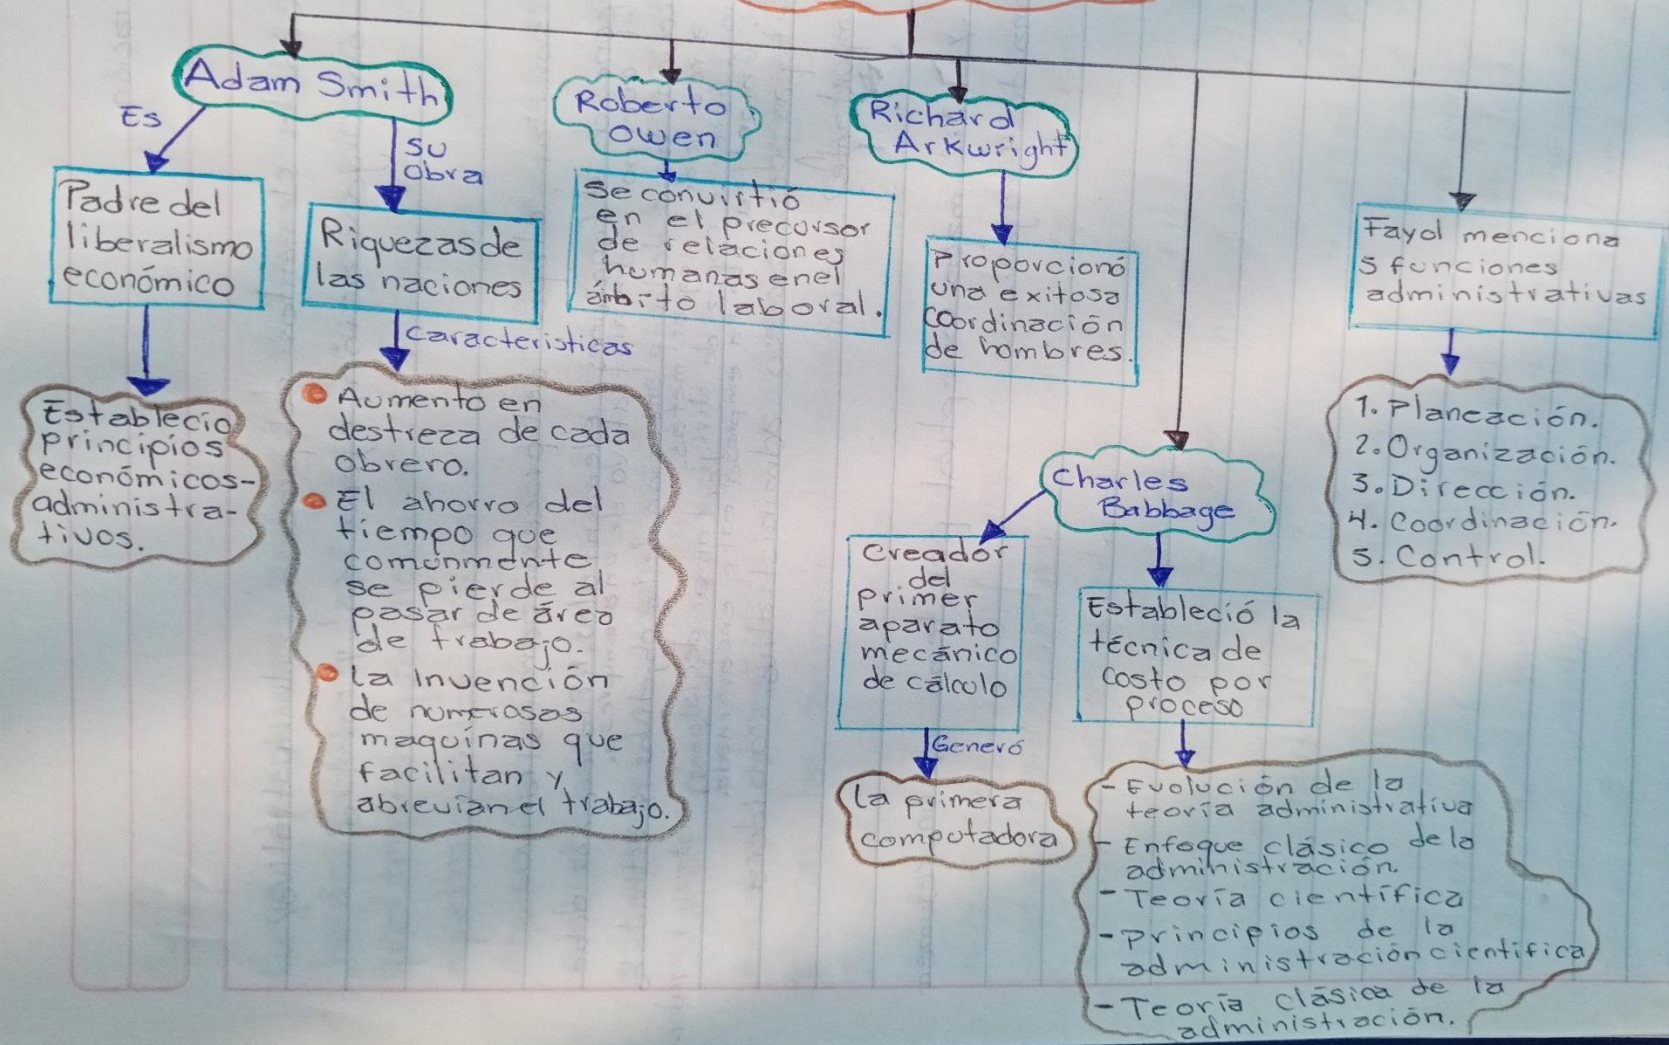 Adam Smith
Es
su
obra
Padre del
liberalismo
económico
Establecio
principios
económicos-
administra-
tivos.
Riquezas de
las naciones
Caracteristicas
Aumento en
destreza de cada
obrero.
El ahorro del
tiempo que
comúnmente
se pierde al
pasar de área
de trabajo.
La invención
de numerosas
maquinas que
facilitan y
abrevian el trabajo.
Roberto
Owen
Se convirtió
en el precursor
de relaciones
humanas en el
ámbito laboral.
Richard
Arkwright
Proporcionó
una exitosa
coordinación
de hombres.
Charles
Babbage
Creador
del
primer
aparato
mecánico
de cálculo
Generó
La primera
computadora
Estableció la
técnica de
costo por
proceso
- Evolución de la
teoría administrativa
- Enfoque clásico de la
administración.
- Teoría científica
- principios de la
administración científica
- Teoría clásica de la
administración.
Fayol menciona
5 funciones
administrativas
1. Planeación.
2. Organización.
3. Dirección.
4. Coordinación.
5. Control.